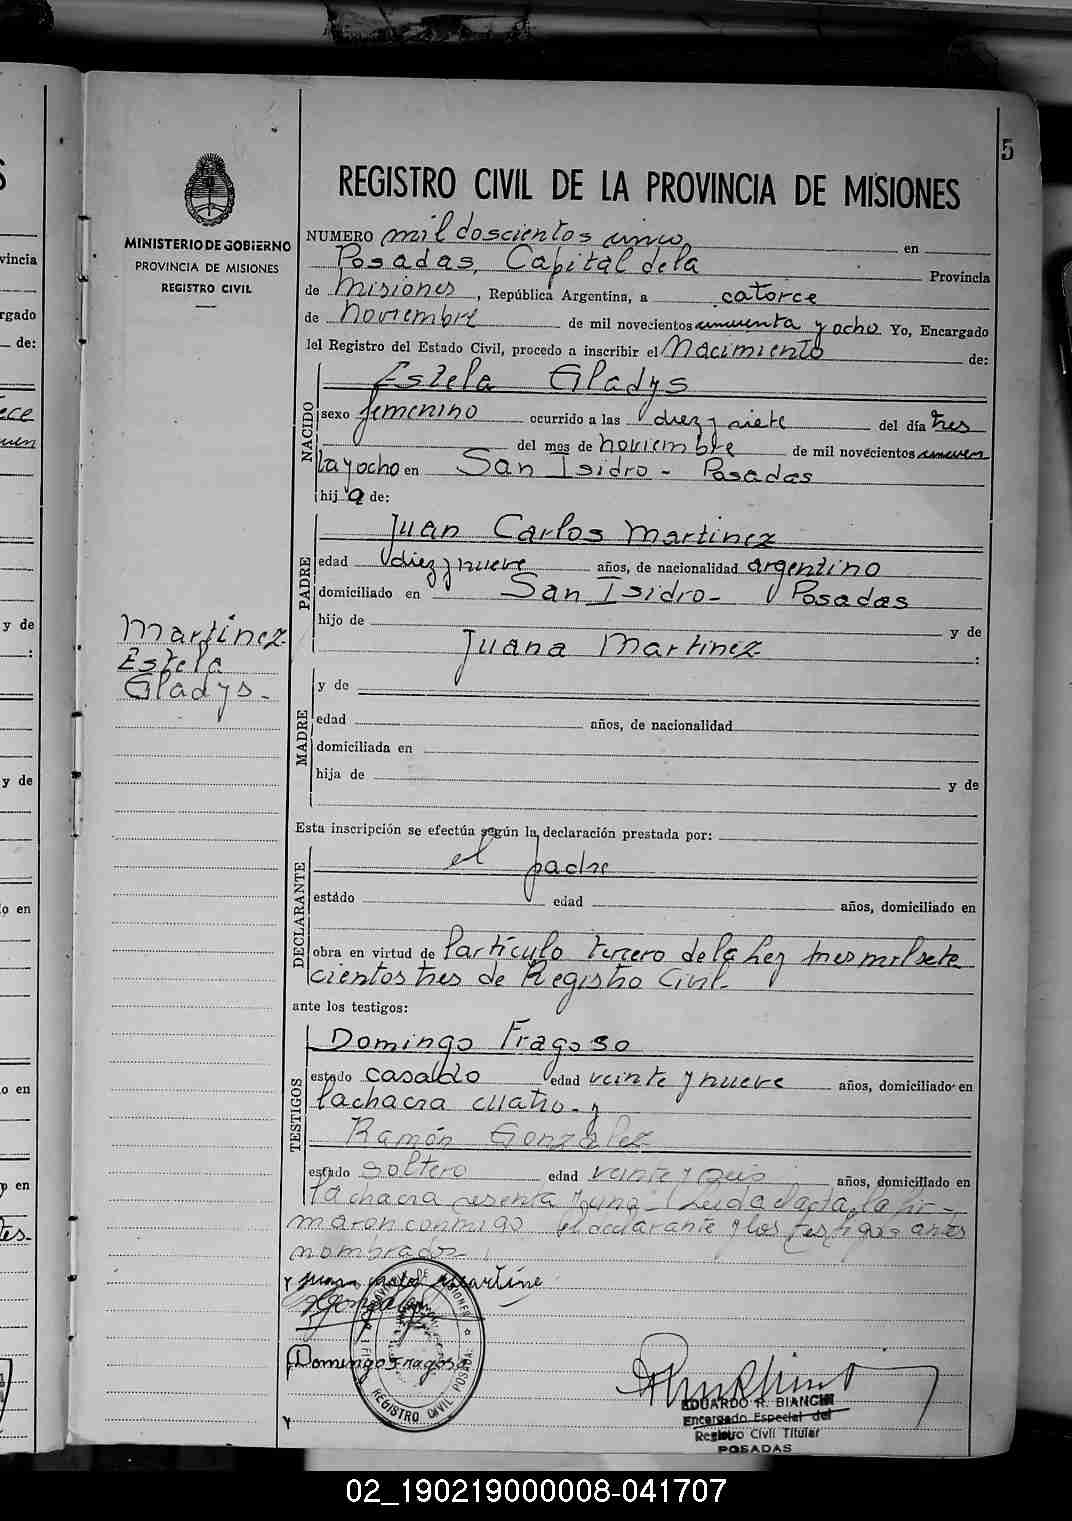 5
REGISTRO CIVIL DE LA PROVINCIA DE MISIONES
MINISTERIO DE GOBIERNO
PROVINCIA DE MISIONES
REGISTRO CIVIL
NUMERO mil doscientos cinco en
Posadas, Capital de la Provincia
de Misiones, República Argentina, a catorce
de Noviembre de mil novecientos cincuenta y ocho Yo, Encargado
del Registro del Estado Civil, procedo a inscribir el Nacimiento de:
NACIDO
Estela Gladys
sexo femenino ocurrido a las diez y siete del día tres
del mes de noviembre de mil novecientos cincuen
ta y ocho en San Isidro - Posadas
hij a de:
PADRE
Juan Carlos Martinez
edad diez y nueve años, de nacionalidad argentino
domiciliado en San Isidro - Posadas
hijo de y de
Juana Martinez :
Martinez
Estela
Gladys.-
MADRE
y de
edad años, de nacionalidad
domiciliada en
hija de y de
Esta inscripción se efectúa según la declaración prestada por:
DECLARANTE
el padre
estado edad años, domiciliado en
obra en virtud de l'artículo tercero de la Ley tres mil sete
cientos tres de Registro Civil.
ante los testigos:
TESTIGOS
Domingo Fragoso
estado casaldo edad veinte y nueve años, domiciliado en
la chacra cuatro - y
Ramón González
estado soltero edad veinte y seis años, domiciliado en
la chacra sesenta y una - Leida el acta, la fir-
maron conmigo el declarante y los testigos antes
nombrados
Domingo Fragoso
REGISTRO CIVIL POSADAS
EDUARDO R. BIANCHI
Encargado Especial del
Registro Civil Titular
POSADAS
vincia
rgado
de:
y de
:
y de
o en
o en
o en
02_190219000008-041707